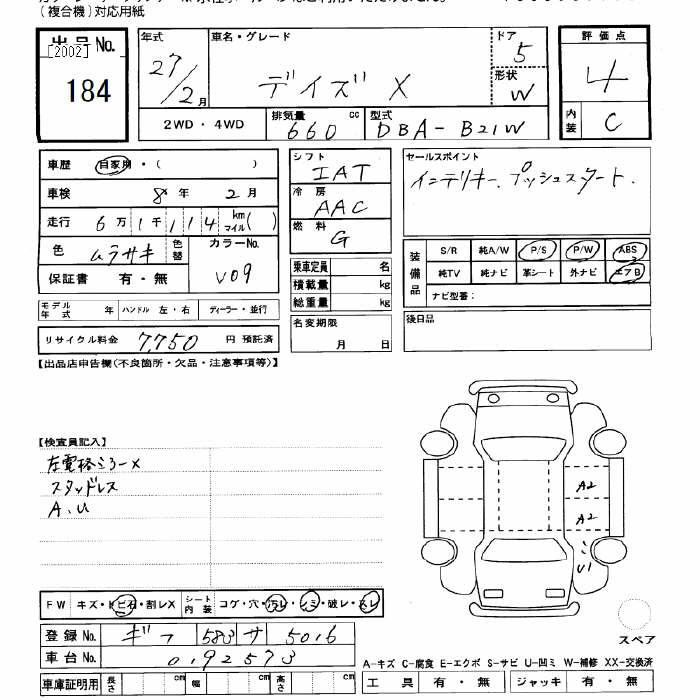 (複合機)対応用紙
出品No. [2002] 184
年式 27/2月
車名・グレード デイズ X
ドア 5
形状 W
評価点 4
内装 C
2WD・4WD
排気量 660 cc
型式 DBA-B21W
車歴 自家用・( )
車検 8年 2月
走行 6万1千114 km マイル( )
色 ムラサキ 色替 カラーNo. V09
保証書 有・無
モデル年式 年 ハンドル 左・右 ディーラー・並行
リサイクル料金 7,750 円 預託済
シフト IAT
冷房 AAC
燃料 G
乗車定員 名
積載量 kg
総重量 kg
名変期限 月 日
セールスポイント
インテリキー. プッシュスタート.
装備品 S/R 純A/W P/S P/W ABS
純TV 純ナビ 革シート 外ナビ エアB
ナビ型番:
後日品
【出品店申告欄(不良箇所・欠品・注意事項等)】
【検査員記入】
左電格ミラー×
スタッドレス
A、U
A2
A2
U1
スペア
FW キズ・トビ石・割レX シート内装 コゲ・穴・汚レ・シミ・破レ・スレ
登録No. ギフ 583 サ 5016
車台No. 0192573
車庫証明用 長さ cm 幅 cm 高さ cm
A-キズ C-腐食 E-エクボ S-サビ U-凹ミ W-補修 XX-交換済
工具 有・無 ジャッキ 有・無